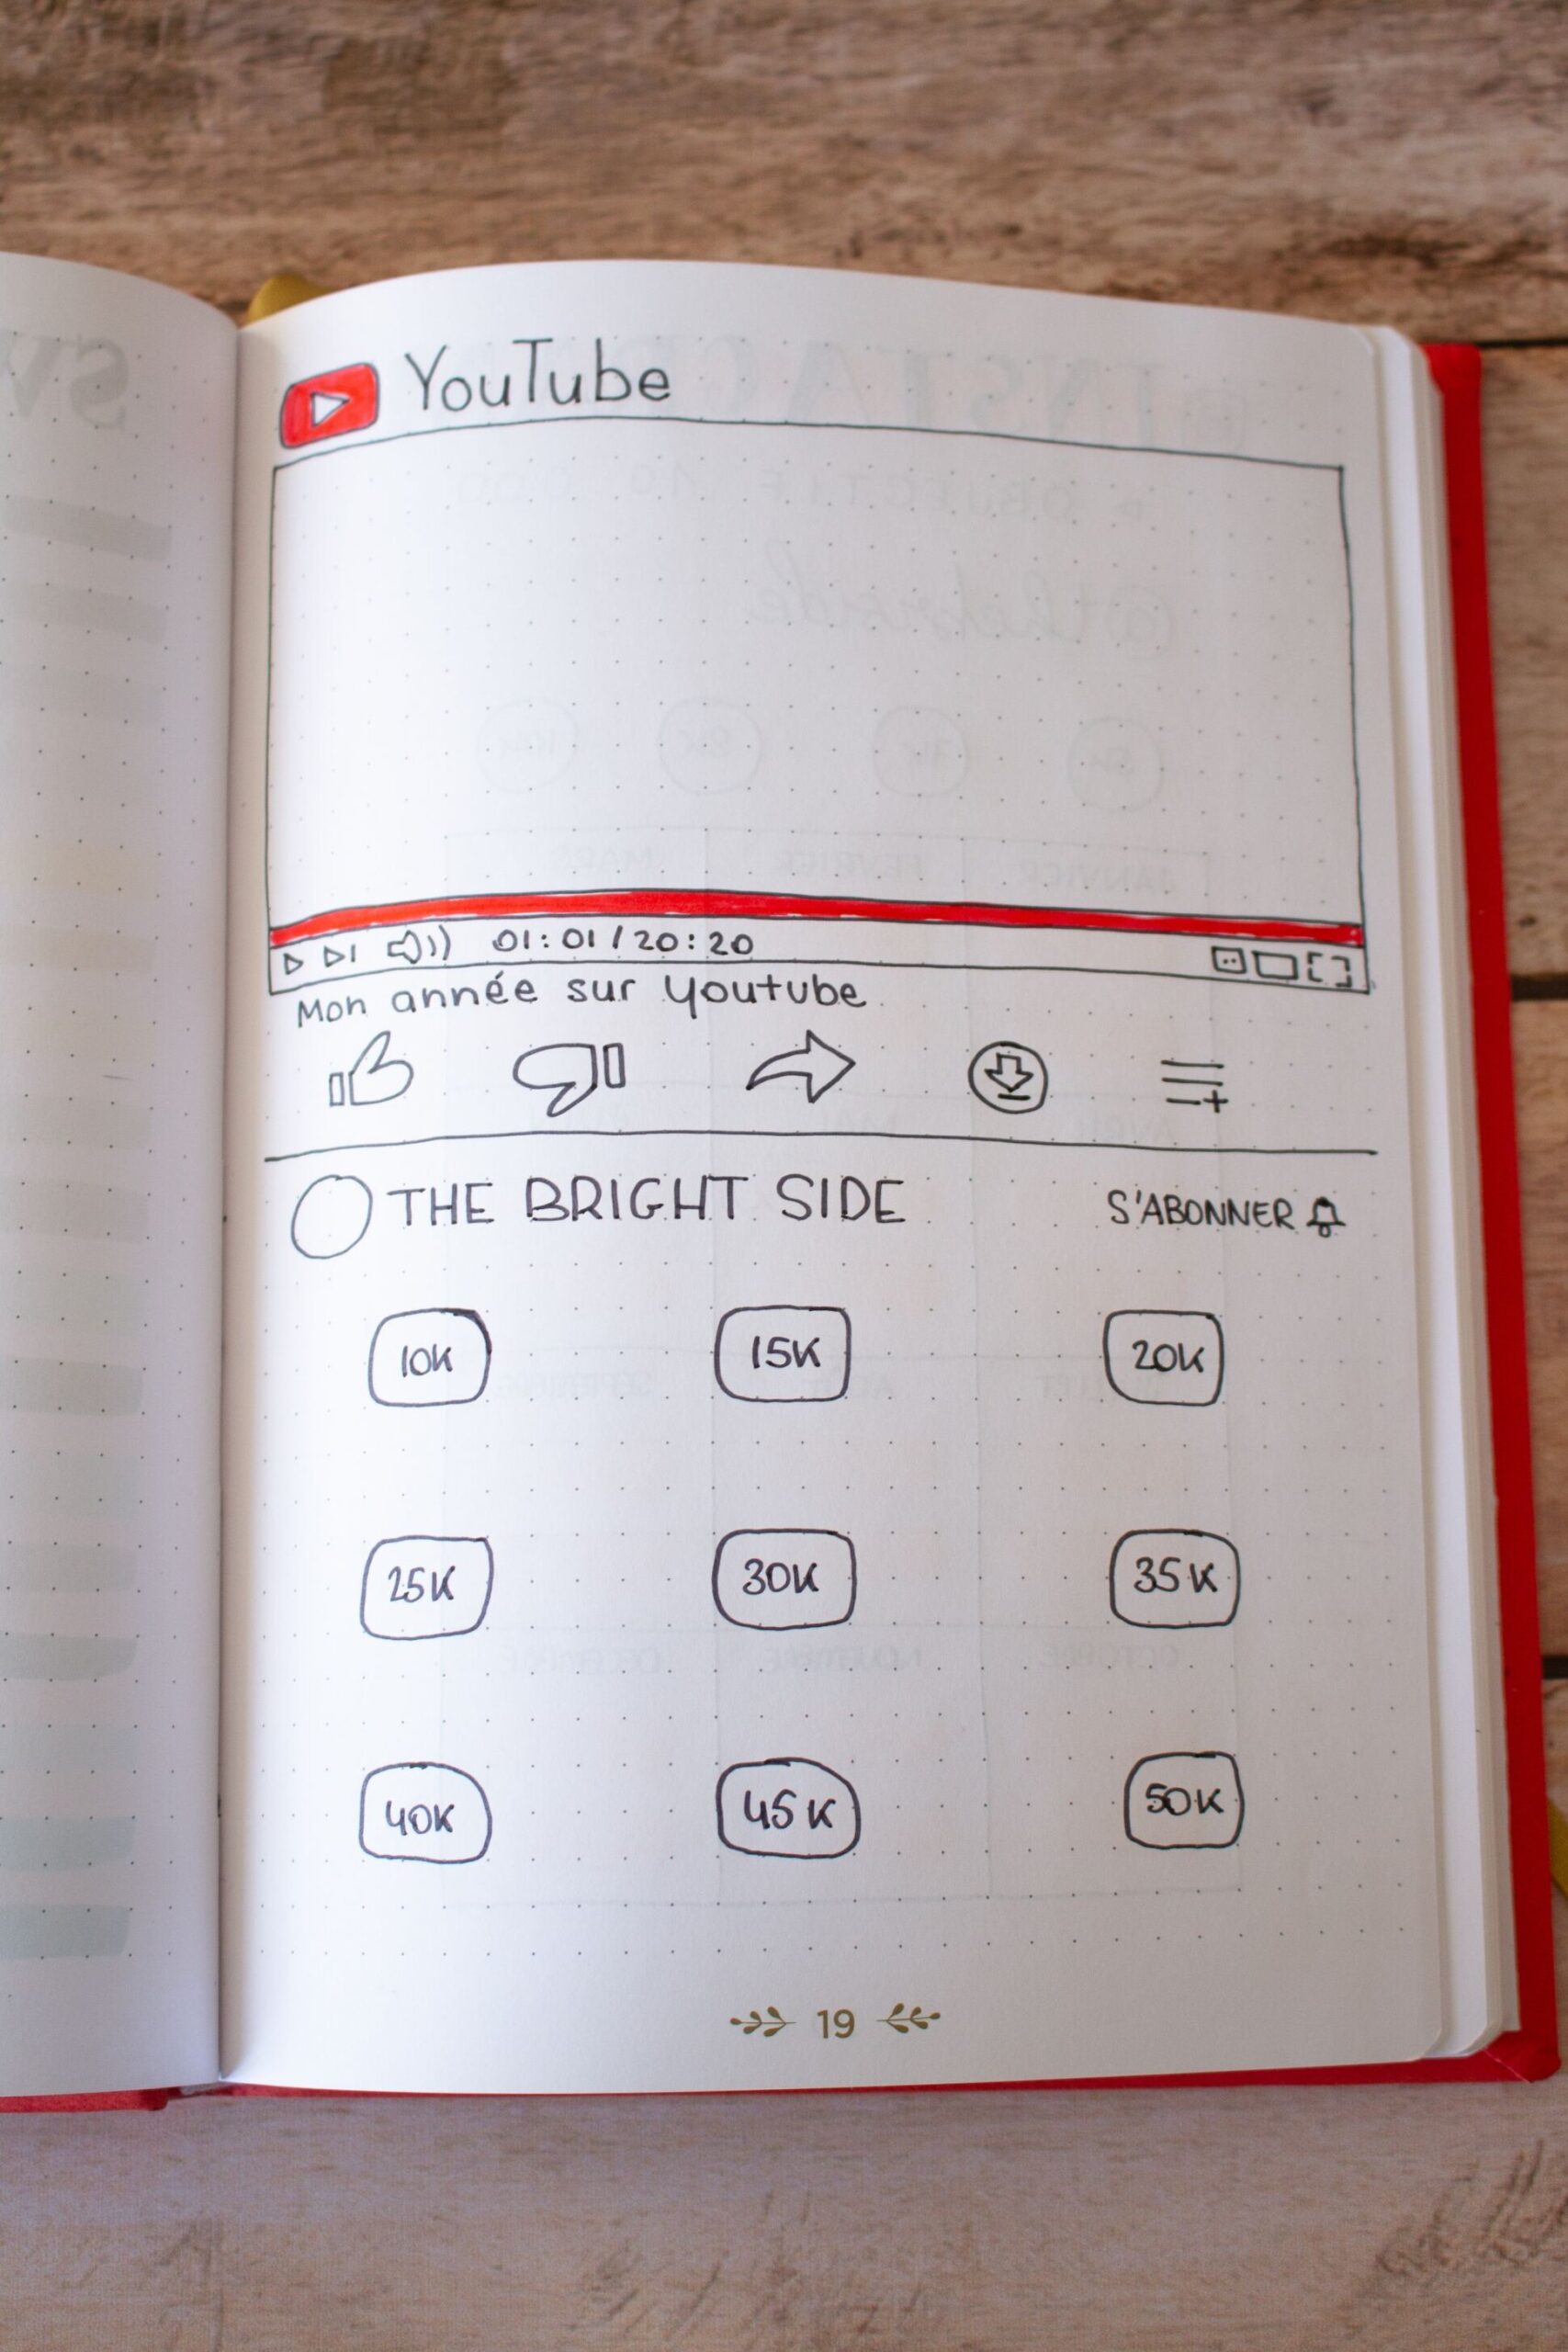 YouTube
01:01/20:20
Mon année sur Youtube
THE BRIGHT SIDE
S'ABONNER
10K 15K 20K
25K 30K 35K
40K 45K 50K
19